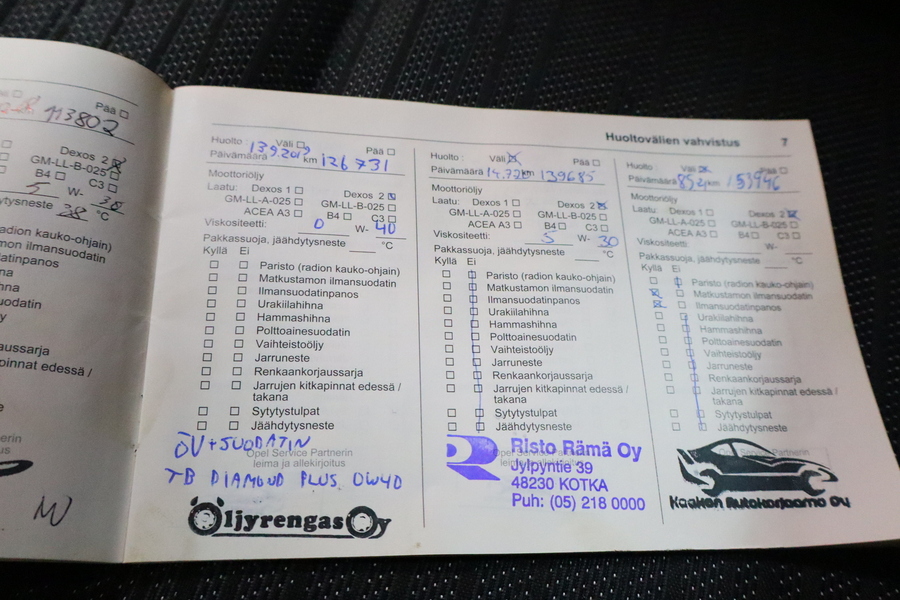 Pää
113802
Dexos 2
GM-LL-B-025
B4 C3
5 W- 30
°C
(radion kauko-ohjain)
Huoltovälien vahvistus 7
Huolto: Väli Pää
Päivämäärä 13.9.2019 km 126 731
Moottoriöljy
Laatu: Dexos 1 Dexos 2
GM-LL-A-025 GM-LL-B-025
ACEA A3 B4 C3
Viskositeetti: 0 W- 40
Pakkassuoja, jäähdytysneste °C
Kyllä Ei
Paristo (radion kauko-ohjain)
Matkustamon ilmansuodatin
Ilmansuodatinpanos
Urakiilahihna
Hammashihna
Polttoainesuodatin
Vaihteistoöljy
Jarruneste
Renkaankorjaussarja
Jarrujen kitkapinnat edessä /
takana
Sytytystulpat
Jäähdytysneste
ÖV+SUODATIN
Opel Service Partnerin
leima ja allekirjoitus
TB DIAMOND PLUS 0W40
Öljyrengas Oy
Huolto: Väli Pää
Päivämäärä km 139685
Moottoriöljy
Laatu: Dexos 1 Dexos 2
GM-LL-A-025 GM-LL-B-025
ACEA A3 B4 C3
Viskositeetti: 5 W- 30
Pakkassuoja, jäähdytysneste °C
Kyllä Ei
Paristo (radion kauko-ohjain)
Matkustamon ilmansuodatin
Ilmansuodatinpanos
Urakiilahihna
Hammashihna
Polttoainesuodatin
Vaihteistoöljy
Jarruneste
Renkaankorjaussarja
Jarrujen kitkapinnat edessä /
takana
Sytytystulpat
Jäähdytysneste
Risto Rämä Oy
Jylpyntie 39
48230 KOTKA
Puh: (05) 218 0000
Huolto: Väli Pää
Päivämäärä km 153946
Moottoriöljy
Laatu: Dexos 1 Dexos 2
GM-LL-A-025 GM-LL-B-025
ACEA A3 B4 C3
Viskositeetti: W-
Pakkassuoja, jäähdytysneste °C
Kyllä Ei
Paristo (radion kauko-ohjain)
Matkustamon ilmansuodatin
Ilmansuodatinpanos
Urakiilahihna
Hammashihna
Polttoainesuodatin
Vaihteistoöljy
Jarruneste
Renkaankorjaussarja
Jarrujen kitkapinnat edessä /
takana
Sytytystulpat
Jäähdytysneste
Kaakon Autokorjaamo Oy